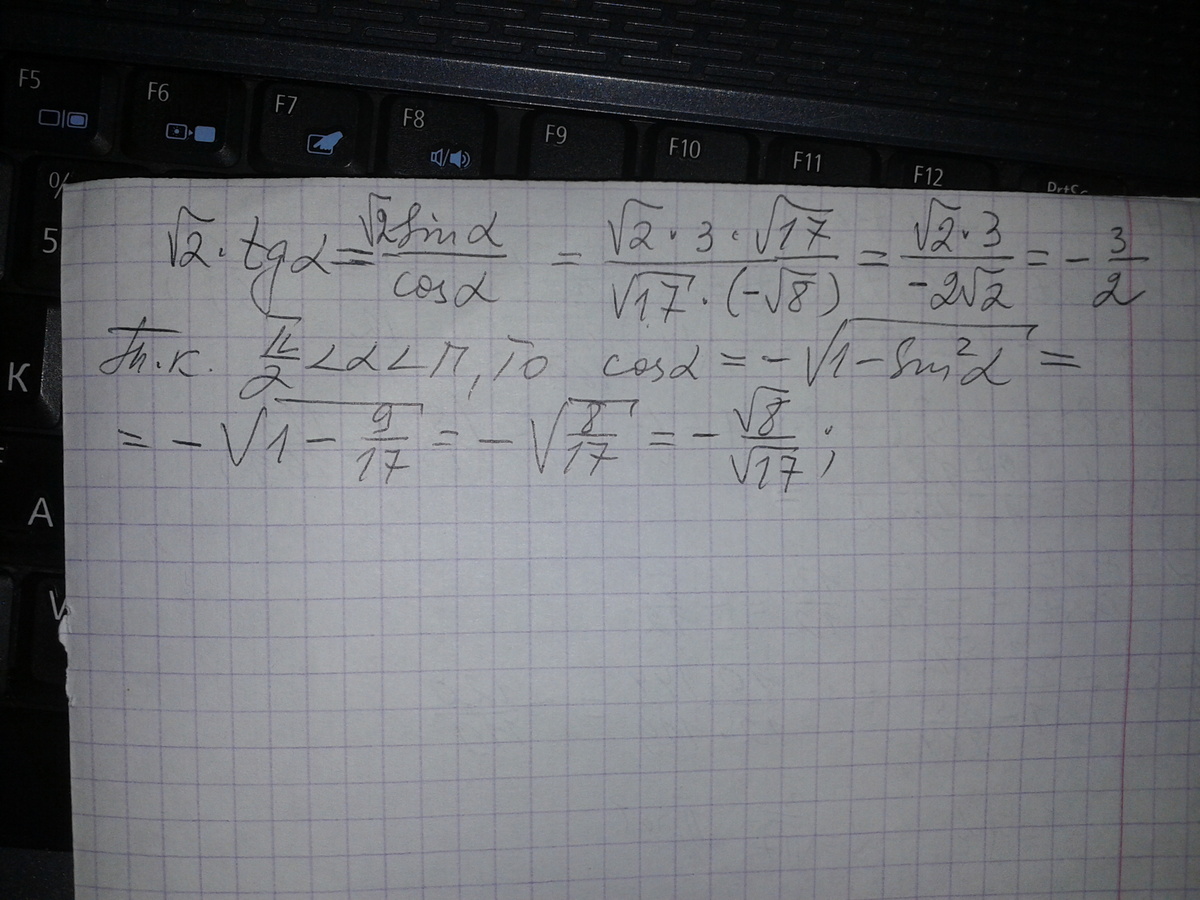 F5 F6 F7 F8 F9 F10 F11 F12
%
5
K
A
√2 · tgα = √2 sin α / cos α = √2 · 3 · √17 / √17 · (-√8) = √2 · 3 / -2√2 = - 3/2
Т.к. π/2 < α < π, то cos α = - √(1 - sin²α) =
= - √(1 - 9/17) = - √(8/17) = - √8/√17 ;